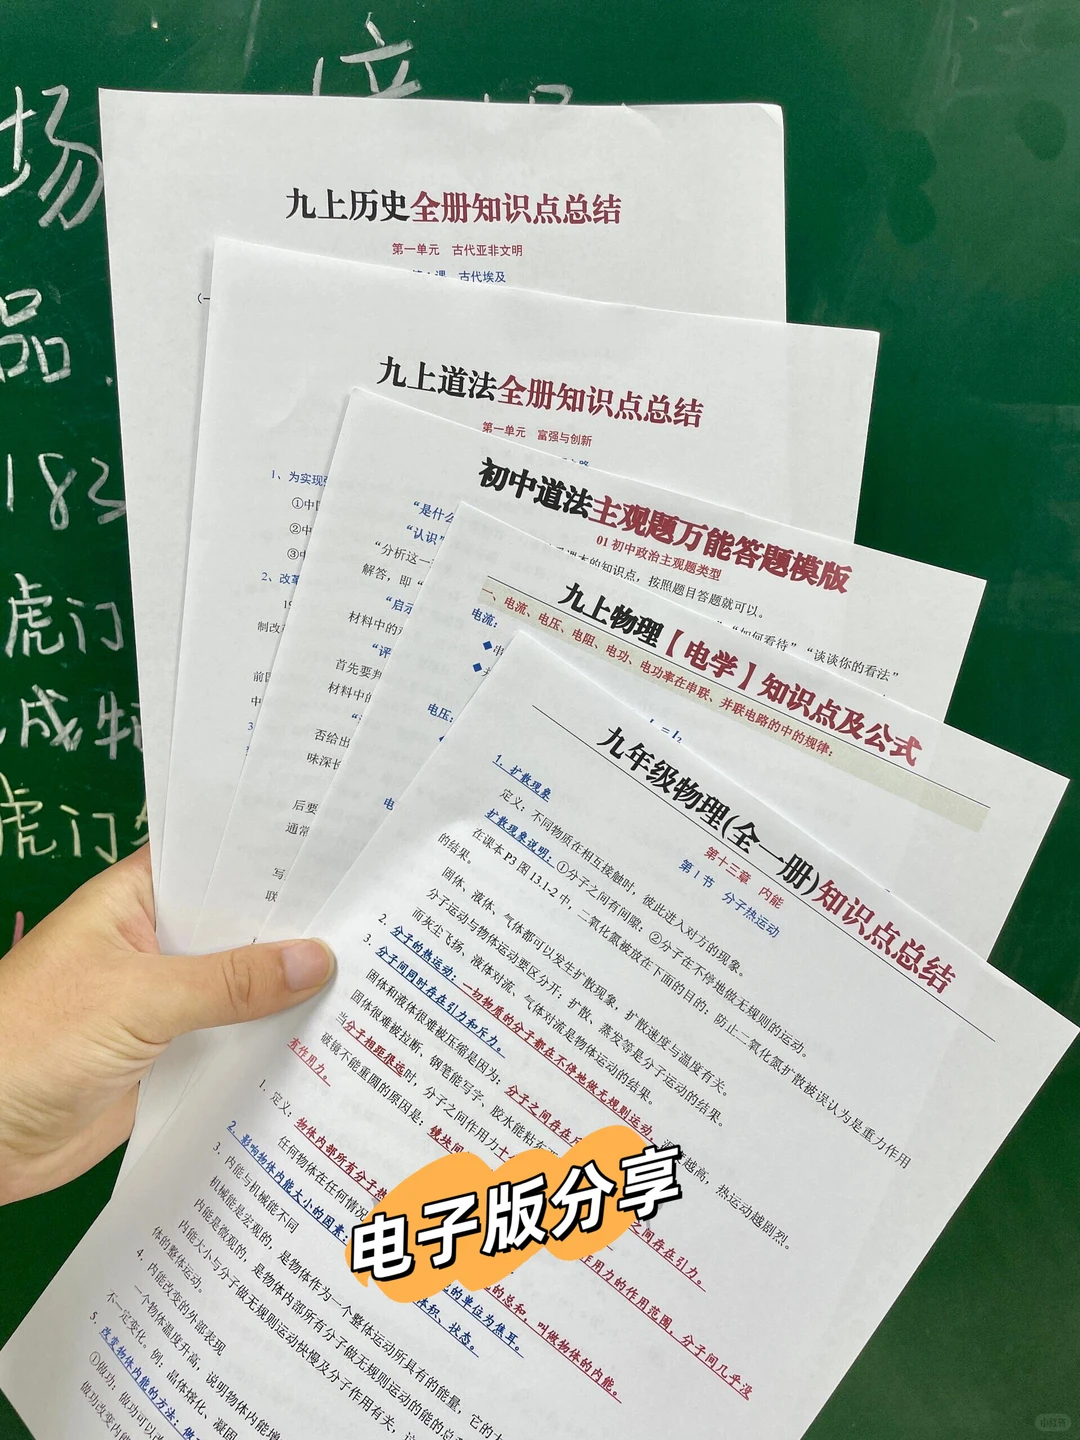 场
品.
183
虎门
成
虎门
九上历史全册知识点总结
第一单元 古代亚非文明
课 古代埃及
九上道法全册知识点总结
第一单元 富强与创新
1、为实现
①中
②中
③中
2、改革
19
制改
初中道法主观题万能答题模版
01 初中政治主观题类型
课本的知识点，按照题目答题就可以。
“如何看待”“谈谈你的看法”
“是什么
“认识”
“分析这一
解答，即“
“启示
材料中的
“评
首先要
材料中的
否给出
味深长
后要
通常
写
联
九上物理【电学】知识点及公式
一、电流、电压、电阻、电功、电功率在串联、并联电路的中的规律：
电流：
电压：
电
九年级物理(全一册)知识点总结
第十三章 内能
第1节 分子热运动
1. 扩散现象
定义：不同物质在相互接触时，彼此进入对方的现象。
扩散现象说明：①分子之间有间隙；②分子在不停地做无规则的运动。
在课本 P3 图 13.1-2 中，二氧化氮被放在下面的目的：防止二氧化氮扩散被误认为是重力作用
的结果。
固体、液体、气体都可以发生扩散现象，扩散速度与温度有关。
分子运动与物体运动要区分开：扩散、蒸发等是分子运动的结果。
而灰尘飞扬、液体对流、气体对流是物体运动的结果。
2. 分子的热运动：一切物质的分子都在不停地做无规则运动。
越高，热运动越剧烈。
3. 分子间同时存在引力和斥力。
固体和液体很难被压缩是因为：分子之间存在斥
固体很难被拉断、钢笔能写字、胶水能粘东
之间存在引力。
当分子相距很远时，分子之间作用力十
作用力的作用范围，分子间几乎没
破镜不能重圆的原因是：镜块间
有作用力。
1. 定义：物体内部所有分子热
的总和，叫做物体的内能。
任何物体在任何情况
的单位为焦耳。
2. 影响物体内能大小的因素：
体积、状态。
3. 内能与机械能不同
机械能是宏观的，是物体作为一个整体运动所具有的能量，它的大
内能是微观的，是物体内部所有分子做无规则运动的能的总
内能大小与分子做无规则运动快慢及分子作用有关，这
体的整体运动。
4. 内能改变的外部表现
一个物体温度升高，说明物体内能增
不一定变化。例：晶体熔化、凝固
5. 改变物体内能的方法：做
①做功：做功可以改
做功改变内能
电子版分享
小红书